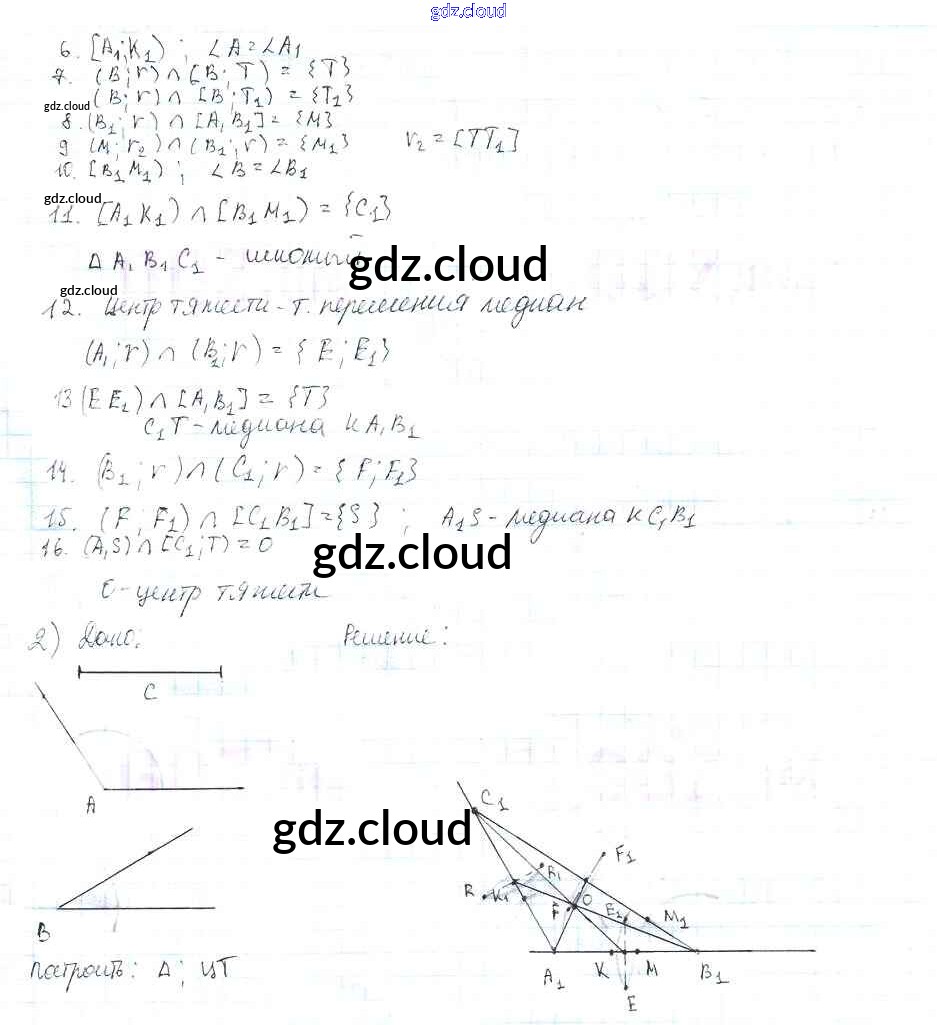 gdz.cloud
6. [A₁;K₁) ; ∠A=∠A₁
7. (B;r) ∩ [B;T) = {T}
gdz.cloud
(B;r) ∩ [B;T₁) = {T₁}
8. (B₁;r) ∩ [A₁B₁] = {M}
9 (M;r₂) ∩ (B₁;r) = {M₁} r₂ = [TT₁]
10. [B₁M₁) ; ∠B=∠B₁
gdz.cloud
11. [A₁K₁) ∩ [B₁M₁) = {C₁}
Δ A₁B₁C₁ - искомый
gdz.cloud
gdz.cloud
12. Центр тяжести - т. пересечения медиан
(A₁;r) ∩ (B₁;r) = {E;E₁}
13 (EE₁) ∩ [A₁B₁] = {T}
C₁T - медиана к A₁B₁
14. (B₁;r) ∩ (C₁;r) = {F;F₁}
15. (F;F₁) ∩ [C₁B₁] = {S} ; A₁S - медиана к C₁B₁
16. (A₁S) ∩ [C₁;T) = O
gdz.cloud
O - центр тяжести
2) Дано: Решение:
C
A
C₁
gdz.cloud
F₁
R R₁ K₁
F O E₁ M₁
B
построить: Δ ; ЦТ
A₁ K M B₁
E